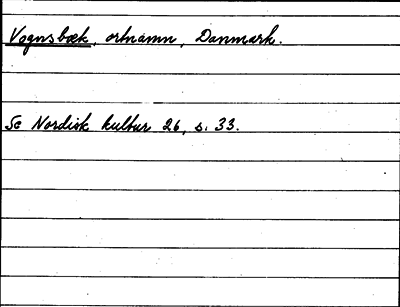 Vognsbæk, ortnamn, Danmark.
Se Nordisk kultur 26, s. 33.